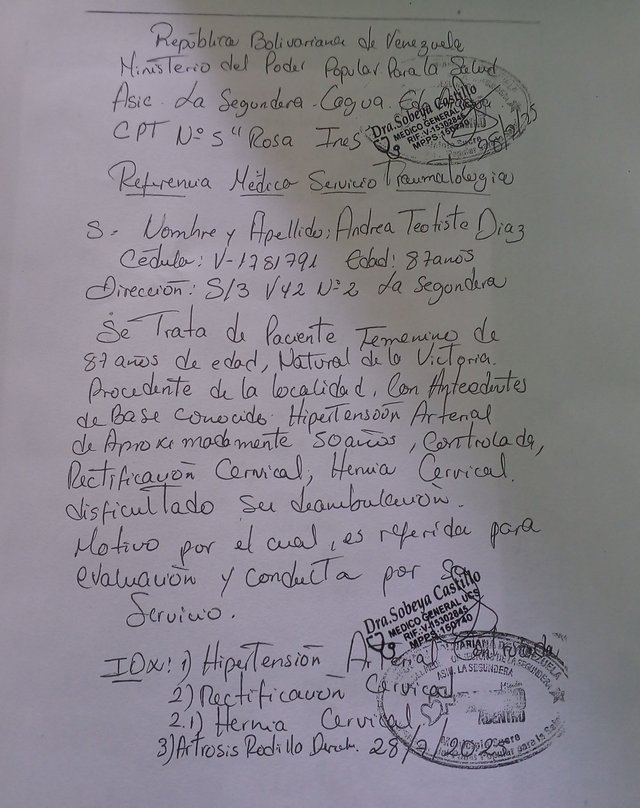 República Bolivariana de Venezuela
Ministerio del Poder Popular Para la Salud
Asic. La Segundera. Cagua. Edo
CPT Nº 5 "Rosa Ines"
Dra. Sobeya Castillo
MEDICO GENERAL
RIF-V-15302845
MPPS. 150740
Referencia Médica Servicio Traumatologia
S- Nombre y Apellido: Andrea Teotiste Diaz
Cédula: V-1781791 Edad: 87años
Dirección: S/3 V42 Nº 2 La Segundera
Se Trata de Paciente Femenino de
87 años de edad, Natural de la Victoria.
Procedente de la localidad, Con Antecedentes
de Base conocido Hipertensión Arterial
de Aproximadamente 50años, Controlada,
Rectificación Cervical, Hernia Cervical.
disficultado su deambulación.
Motivo por el cual, es referida para
evaluación y conducta por su
Servicio.
Dra. Sobeya Castillo
MEDICO GENERAL UCS
RIF-V-15302845
MPPS. 150740
IDx: 1) Hipertensión Arterial Controlada
2) Rectificación Cervical
2.1) Hernia Cervical
ASIC. LA SEGUNDERA
ADENTRO
3) Artrosis Rodilla Derch. 28/7/2025